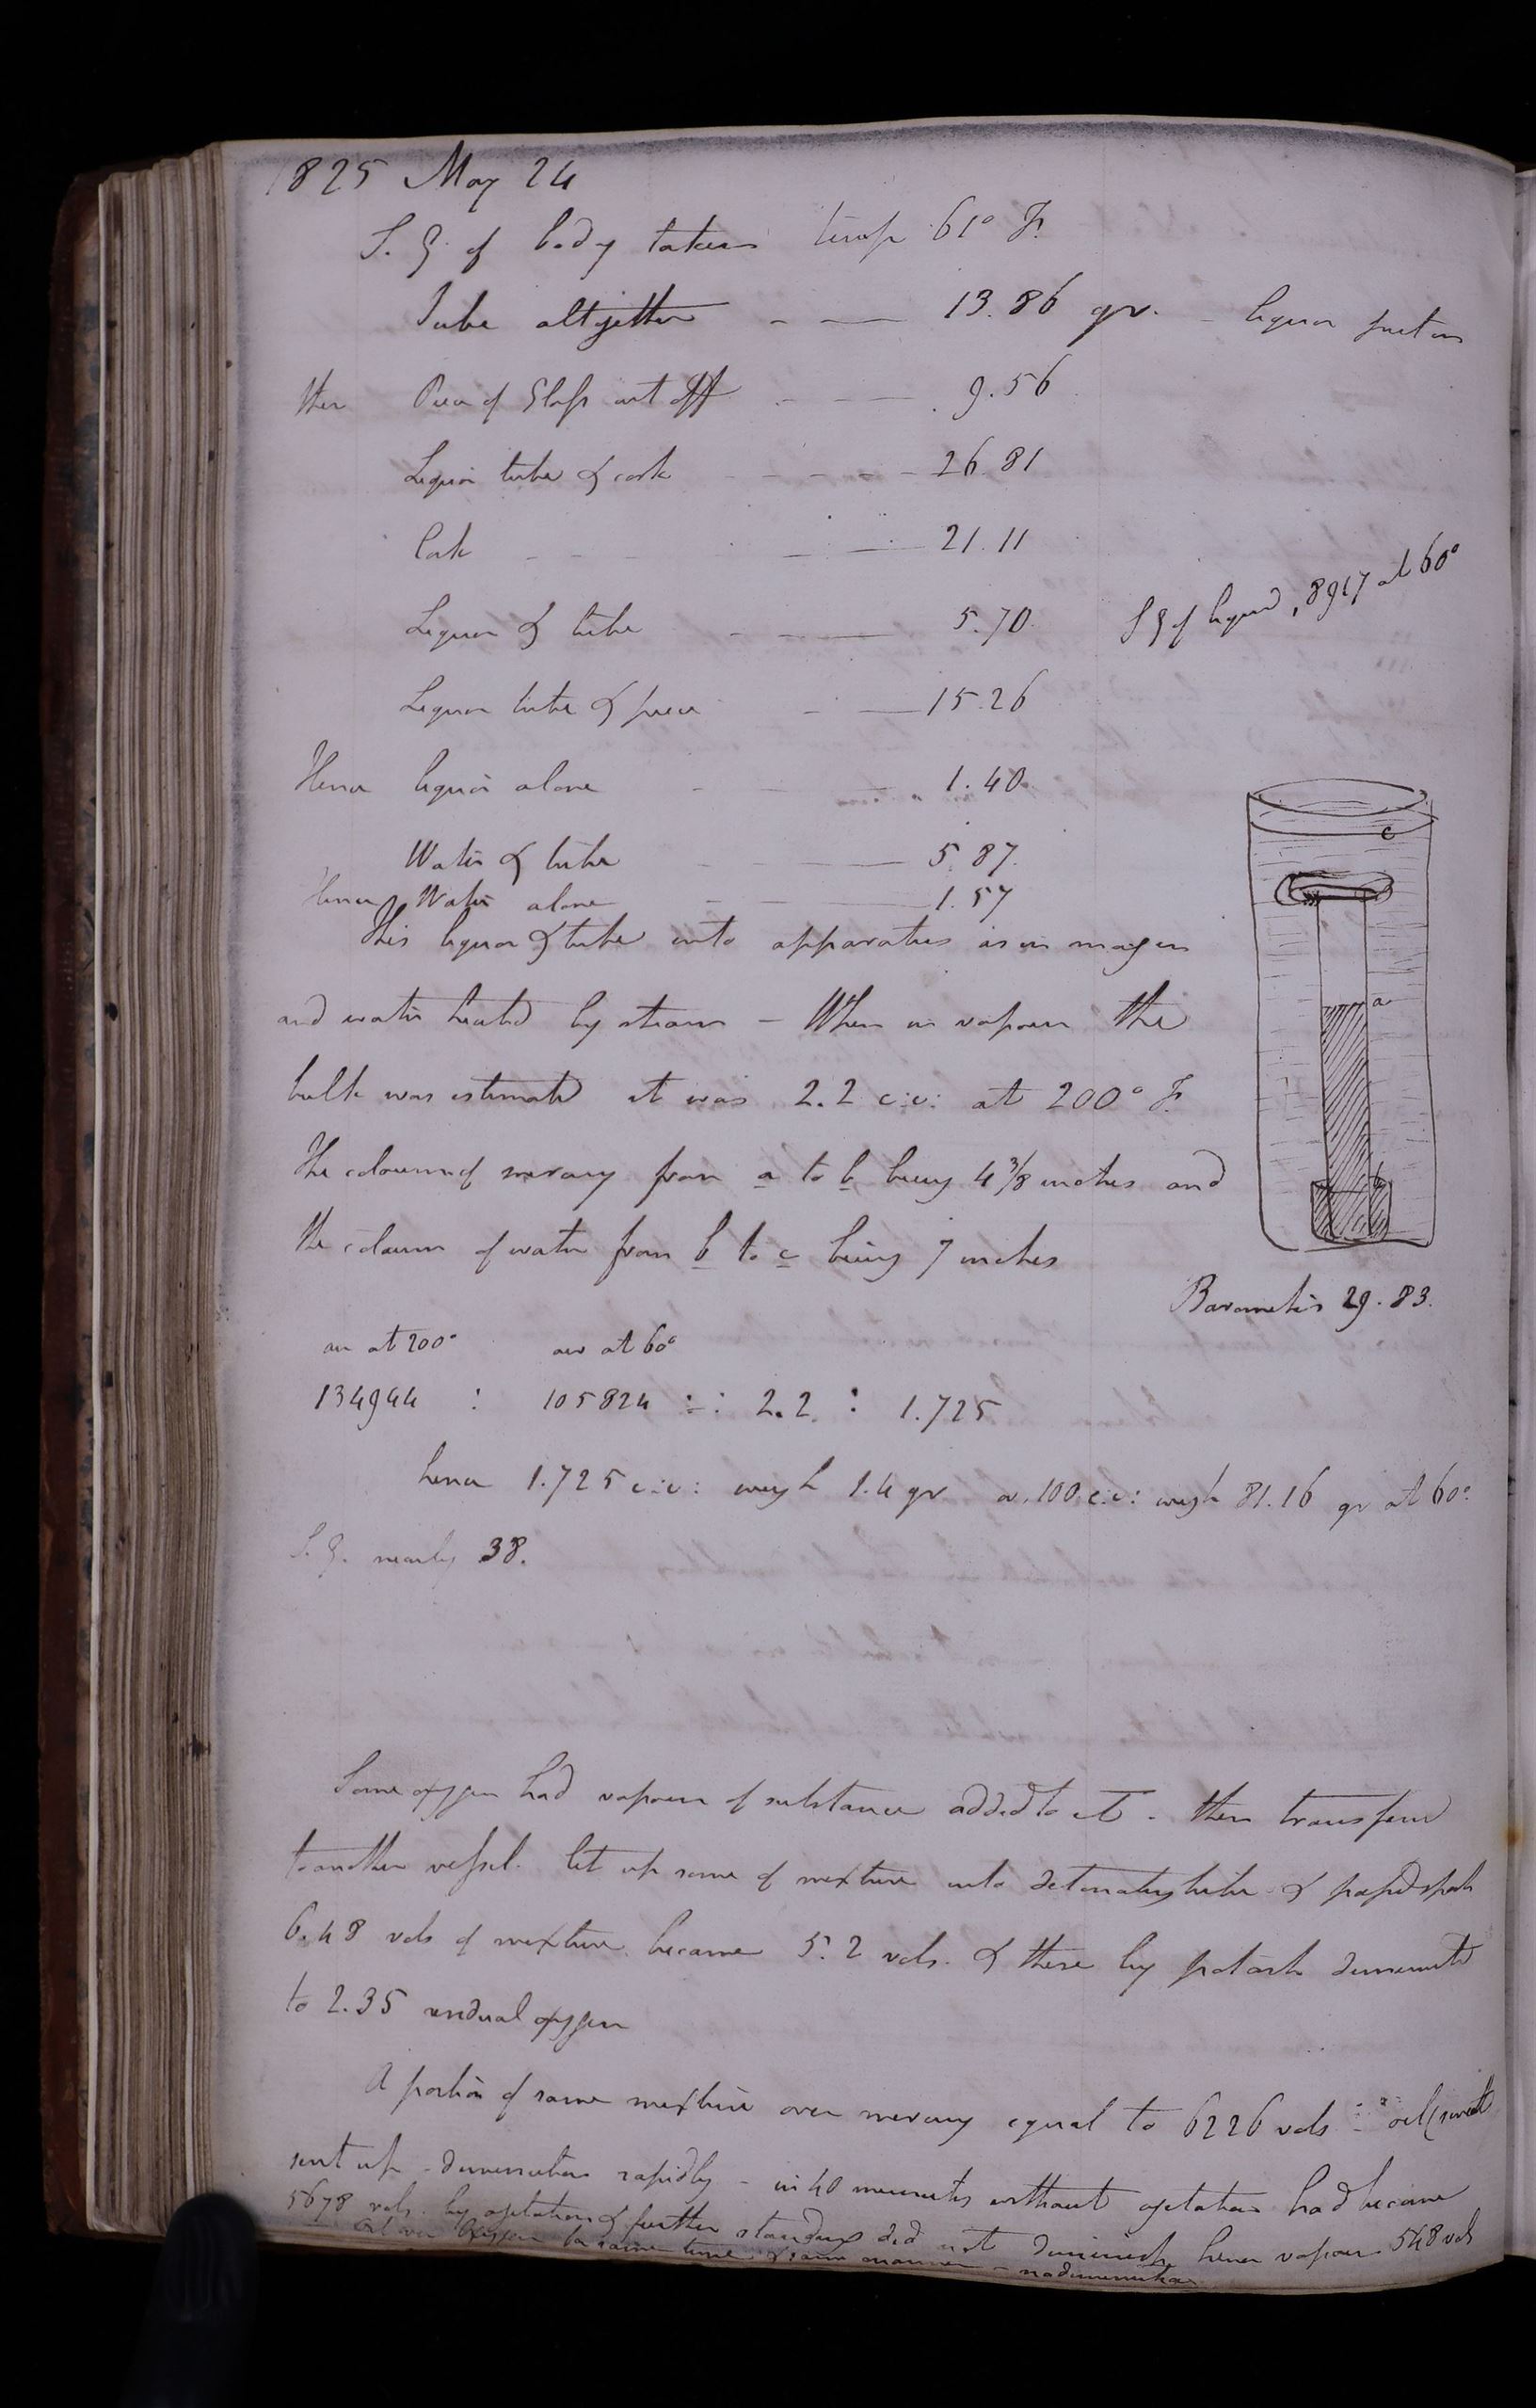 1825 May 24
S. G. of body taken temp 61° F.
Tube altogether - — 13.86 gr. - liquor put in
then Piece of Glass cut off - - — 9.56
Liquor tube & cork - - - - 26.81
Cork - - - - — 21.11
Liquor & tube - - — 5.70
S G of liquid ,8917 at 60°
Liquor tube & piece - — 15.26
Hence liquor alone - - - 1.40
Water & tube - — 5.87
Hence Water alone - — 1.57
c
a
b
This liquor & tube into apparatus as in margin
and water heated by steam - When in vapour the
bulk was estimated it was 2.2 c:i: at 200° F.
The column of mercury from a to b being 4 3/8 inches and
the column of water from b to c being 7 inches
Barometer 29.83.
air at 200° air at 60°
134944 : 105824 :: 2.2 : 1.725
hence 1.725 c:i: weigh 1.4 gr or 100 c:i: weigh 81.16 gr at 60°
S. G. nearly 38.
Some oxygen had vapour of substance added to it - then transferred
to another vessel. let up some of mixture into detonating tube & passed spark
6.48 vols of mixture became 5.2 vols. & these by potash diminished
to 2.35 residual oxygen
A portion of same mixture over mercury equal to 6226 vols oil (sweet)
sent up - diminution rapidly - in 40 minutes without agitation had become
5678 vols. by agitation & further standing did not diminish hence vapour 548 vols
Oil over Oxygen for same time & same manner - no diminution